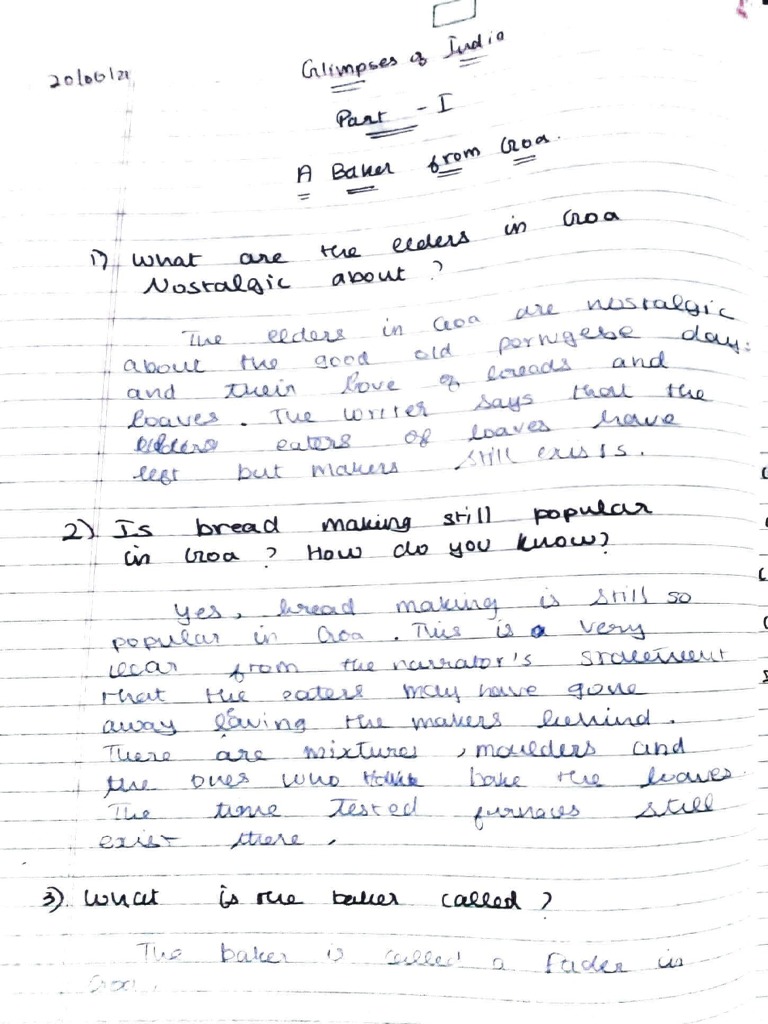 20/06/21
Glimpses of India
Part - I
A Baker from Goa.
1) What are the elders in Goa
Nostalgic about ?
The elders in Goa are nostalgic
about the good old portugese days
and their love of breads and
loaves. The writer says that the
eaters of loaves have
left but makers still exists.
2) Is bread making still popular
in Goa ? How do you know?
Yes, bread making is still so
popular in Goa. This is a very
clear from the narrator's statement
that the eaters may have gone
away leaving the makers behind.
There are mixtures, moulders and
the ones who bake the loaves.
The time tested furnaces still
exist there.
3). What is the baker called ?
The baker is called a Pader in
Goa.